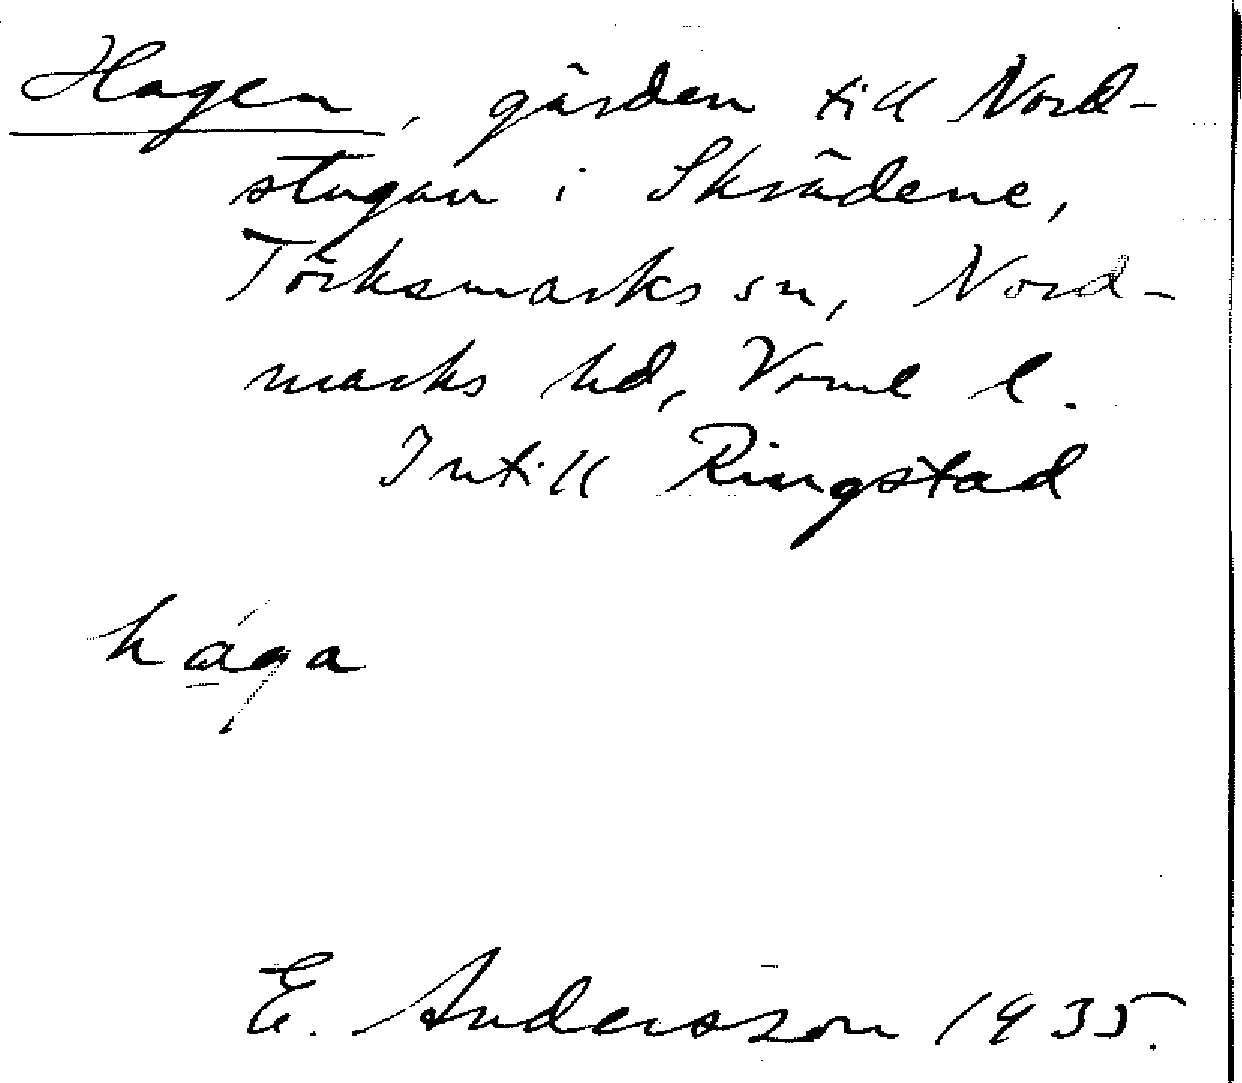 Hagen, gården till Nord-
stugan i Skrädene,
Törksmarks sn, Nord-
marks hd, Vrml l.
Intill Ringstad
håga
E. Andersson 1935.